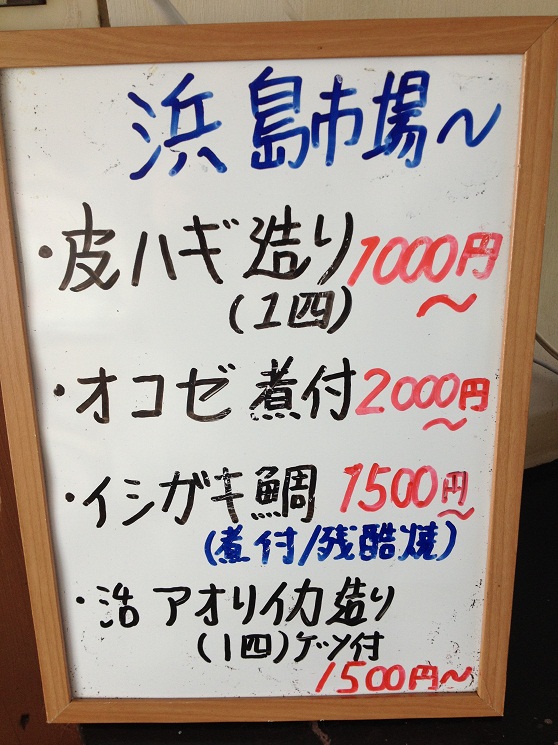 浜島市場〜
・皮ハギ造り 1000円〜
(1四)
・オコゼ煮付 2000円〜
・イシガキ鯛 1500円〜
(煮付/残酷焼)
・活アオリイカ造り
(1四)ゲソ付
1500円〜